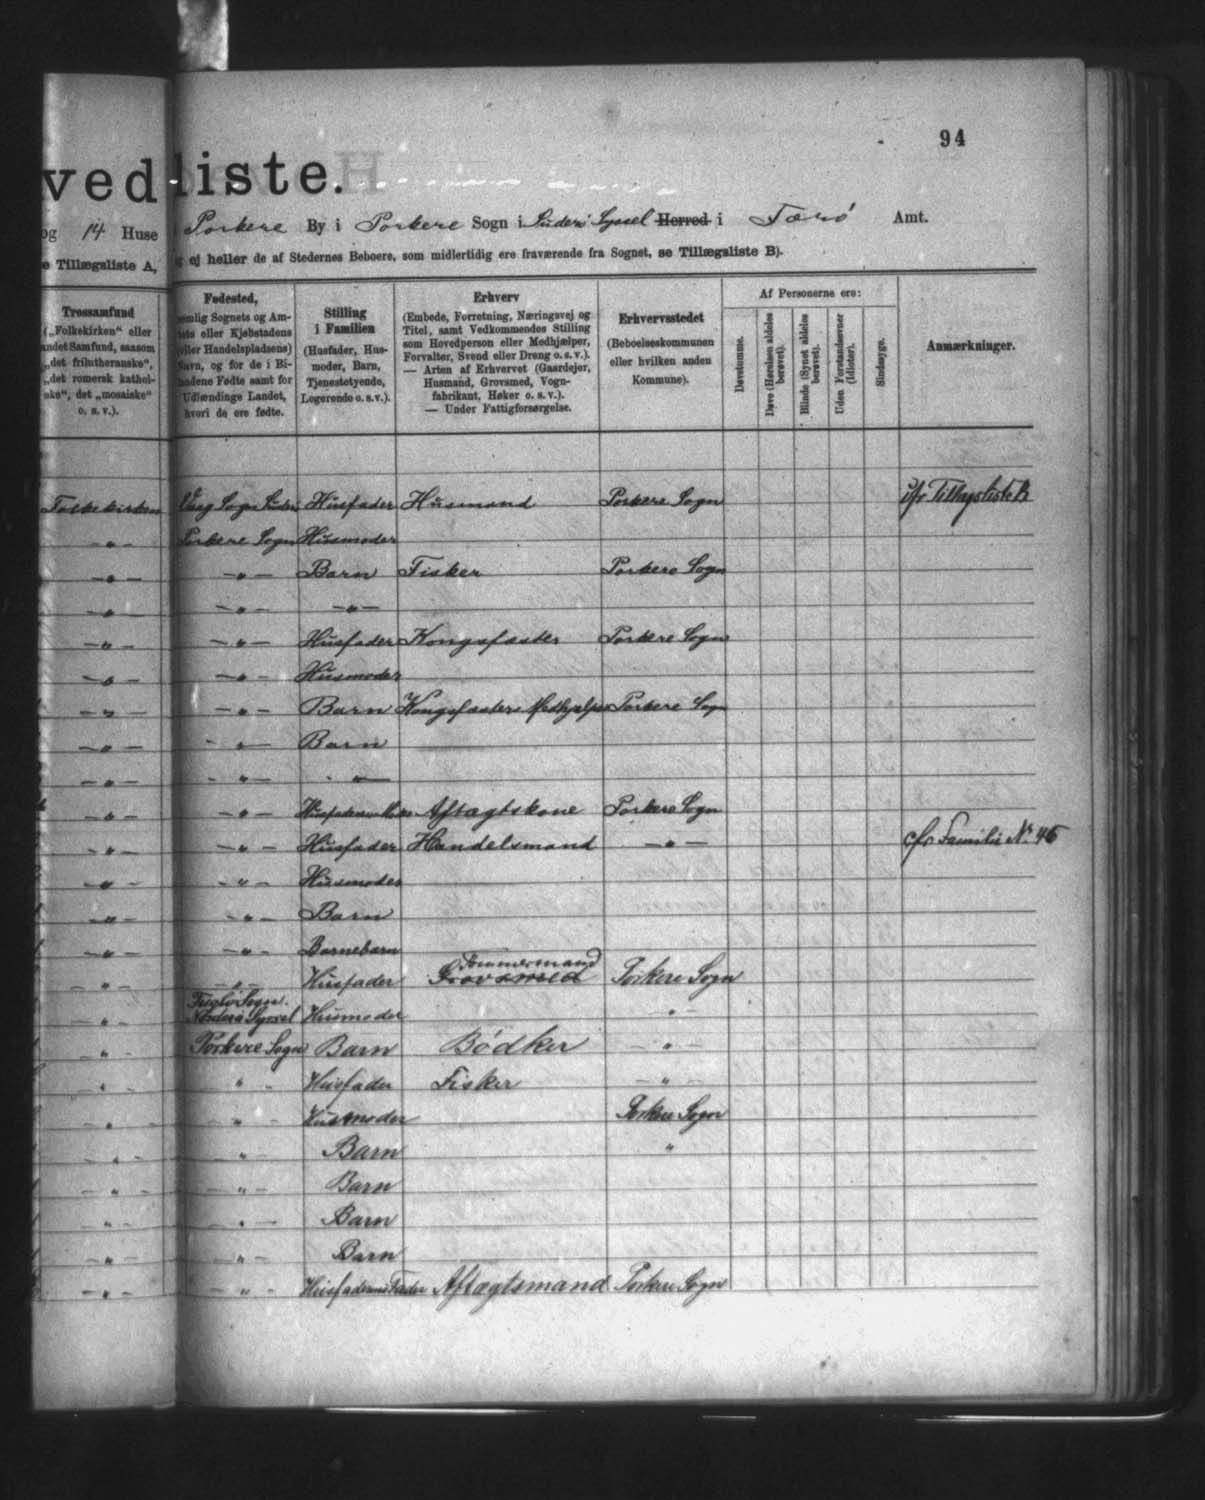 94
vedliste.
og 14 Huse Porkere By i Porkere Sogn i Suderø Syssel Herred i Færø Amt.
e Tillægsliste A, ej heller de af Stedernes Beboere, som midlertidig ere fraværende fra Sognet, se Tillægsliste B).
Trossamfund
("Folkekirken" eller
andet Samfund, saasom
"det frilutheranske",
"det romersk kathol-
ske", det "mosaiske"
o. s. v.).
Fødested,
nemlig Sognets og Am-
tets eller Kjøbstadens
(eller Handelspladsens)
Navn, og for de i Bi-
landene Fødte samt for
Udlændinge Landet,
hvori de ere fødte.
Stilling
i Familien
(Husfader, Hus-
moder, Barn,
Tjenestetyende,
Logerende o. s. v.).
Erhverv
(Embede, Forretning, Næringsvej og
Titel, samt Vedkommendes Stilling
som Hovedperson eller Medhjælper,
Forvalter, Svend eller Dreng o. s. v.).
— Arten af Erhvervet (Gaardejer,
Husmand, Grovsmed, Vogn-
fabrikant, Høker o. s. v.).
— Under Fattigforsørgelse.
Erhvervsstedet
(Beboelseskommunen
eller hvilken anden
Kommune).
Af Personerne ere:
Døvstumme.
Døve (Hørelsen aldeles
berøvet).
Blinde (Synet aldeles
berøvet).
Uden Forstandsevner
(Idioter).
Sindssyge.
Anmærkninger.
Folkekirken Vaag Sogn Suderø Husfader Husmand Porkere Sogn cfr Tillægsliste B
—"— Porkere Sogn Husmoder
—"— —"— Barn Fisker Porkere Sogn
—"— —"— —"—
—"— —"— Husfader Kongsfæster Porkere Sogn
—"— —"— Husmoder
—"— —"— Barn Kongsfæsters Medhjælper Porkere Sogn
—"— —"— Barn
—"— —"— —"—
—"— —"— Husfaderens Moder Aftægtskone Porkere Sogn
—"— —"— Husfader Handelsmand —"— cfr Familie № 46
—"— —"— Husmoder
—"— —"— Barn
—"— —"— Barnebarn
—"— —"— Husfader Grovsmed Tømmermand Porkere Sogn
—"— Fuglø Sogn. Norderø Syssel Husmoder "
—"— Porkere Sogn Barn Bødker —"—
—"— —"— Husfader Fisker —"—
—"— —"— Husmoder Porkere Sogn
—"— —"— Barn "
—"— —"— Barn
—"— —"— Barn
—"— —"— Barn
—"— —"— Husfaderens Fader Aftægtsmand Porkere Sogn